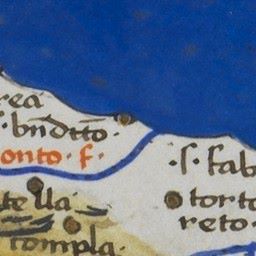 rea
s. bndtto·
onto· f·
·s· fab
tella
torto
reto·
compla·